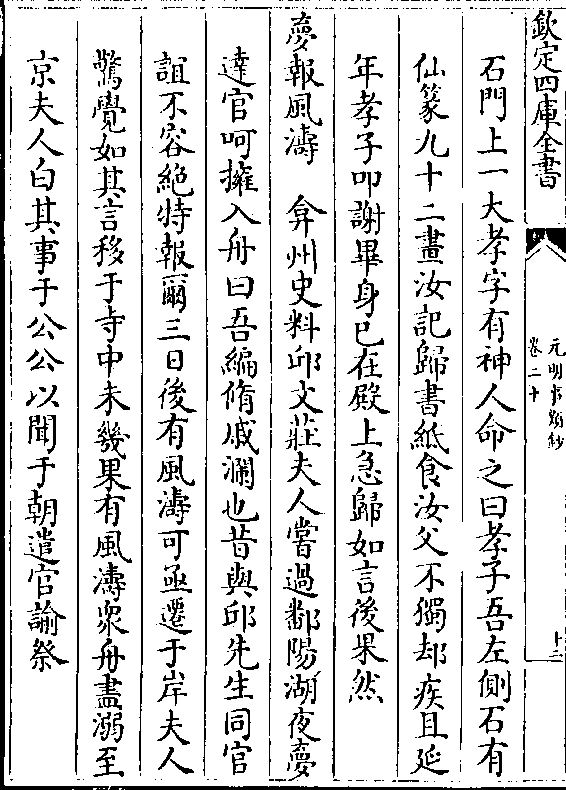 欽定四庫全書
元明事類鈔
卷二十
十三
石門上一大孝字有神人命之曰孝子吾左側石有
仙篆九十二畫汝記歸書紙食汝父不獨却疾且延
年孝子叩謝畢身已在殿上急歸如言後果然
夢報風濤　弇州史料邱文莊夫人嘗過鄱陽湖夜夢
達官呵擁入舟曰吾編脩戚瀾也昔與邱先生同官
誼不容絶特報爾三日後有風濤可亟遷于岸夫人
驚覺如其言移于寺中未幾果有風濤衆舟盡溺至
京夫人白其事于公公以聞于朝遣官諭祭